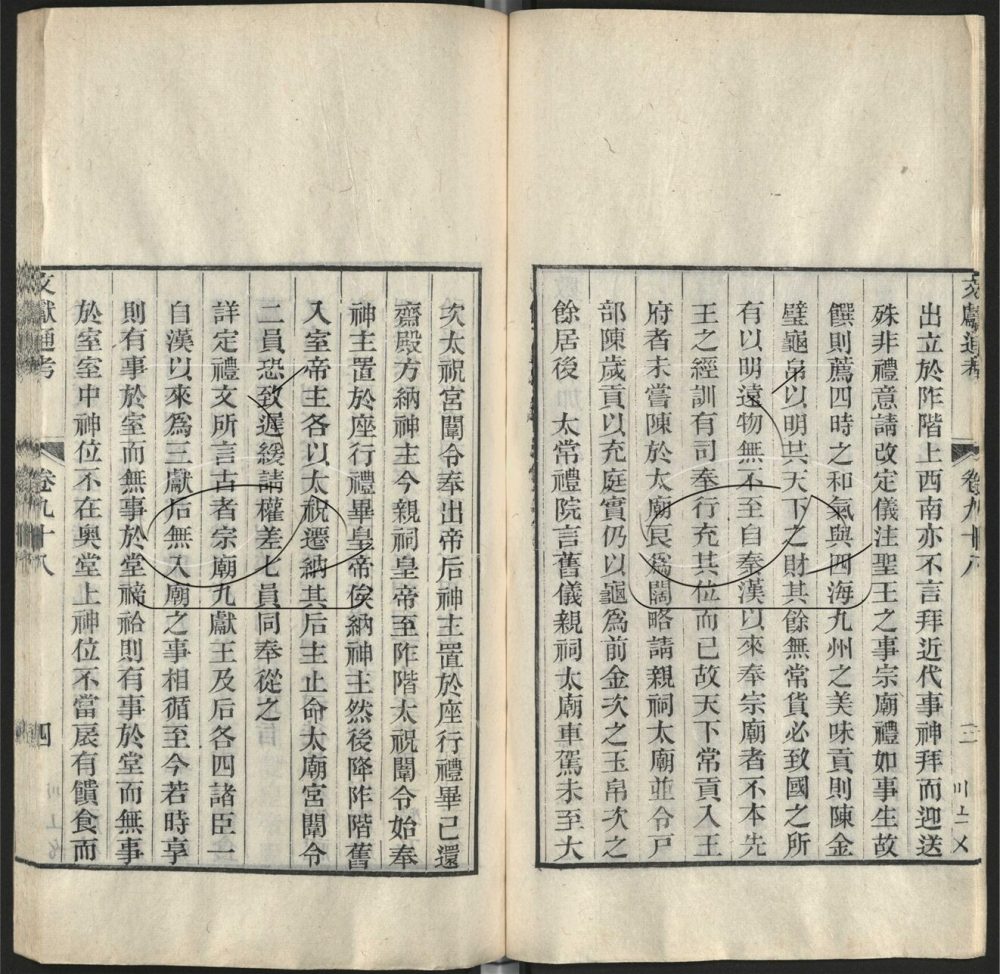 文獻通考 卷九十八 三
出立於阼階上西南亦不言拜近代事神拜而迎送
殊非禮意請改定儀注聖王之事宗廟禮如事生故
饌則薦四時之和氣與四海九州之美味貢則陳金
璧龜帛以明共天下之財其餘無常貨必致國之所
有以明遠物無不至自秦漢以來奉宗廟者不本先
王之經訓有司奉行充其位而已故天下常貢入王
府者未嘗陳於太廟良爲闊略請親祠太廟並令戸
部陳歲貢以充庭實仍以龜爲前金次之玉帛次之
餘居後 太常禮院言舊儀親祠太廟車駕未至大
次太祝宮闈令奉出帝后神主置於座行禮畢已還
齋殿方納神主今親祠皇帝至阼階太祝闈令始奉
神主置於座行禮畢皇帝俟納神主然後降阼階舊
入室帝主各以太祝遷納其后主止命太廟宮闈令
二員恐致遲緩請權差七員同奉從之
詳定禮文所言古者宗廟九獻王及后各四諸臣一
自漢以來爲三獻后無入廟之事相循至今若時享
則有事於室而無事於堂禘祫則有事於堂而無事
於室室中神位不在奧堂上神位不當扆有饋食而
文獻通考 卷九十八 四